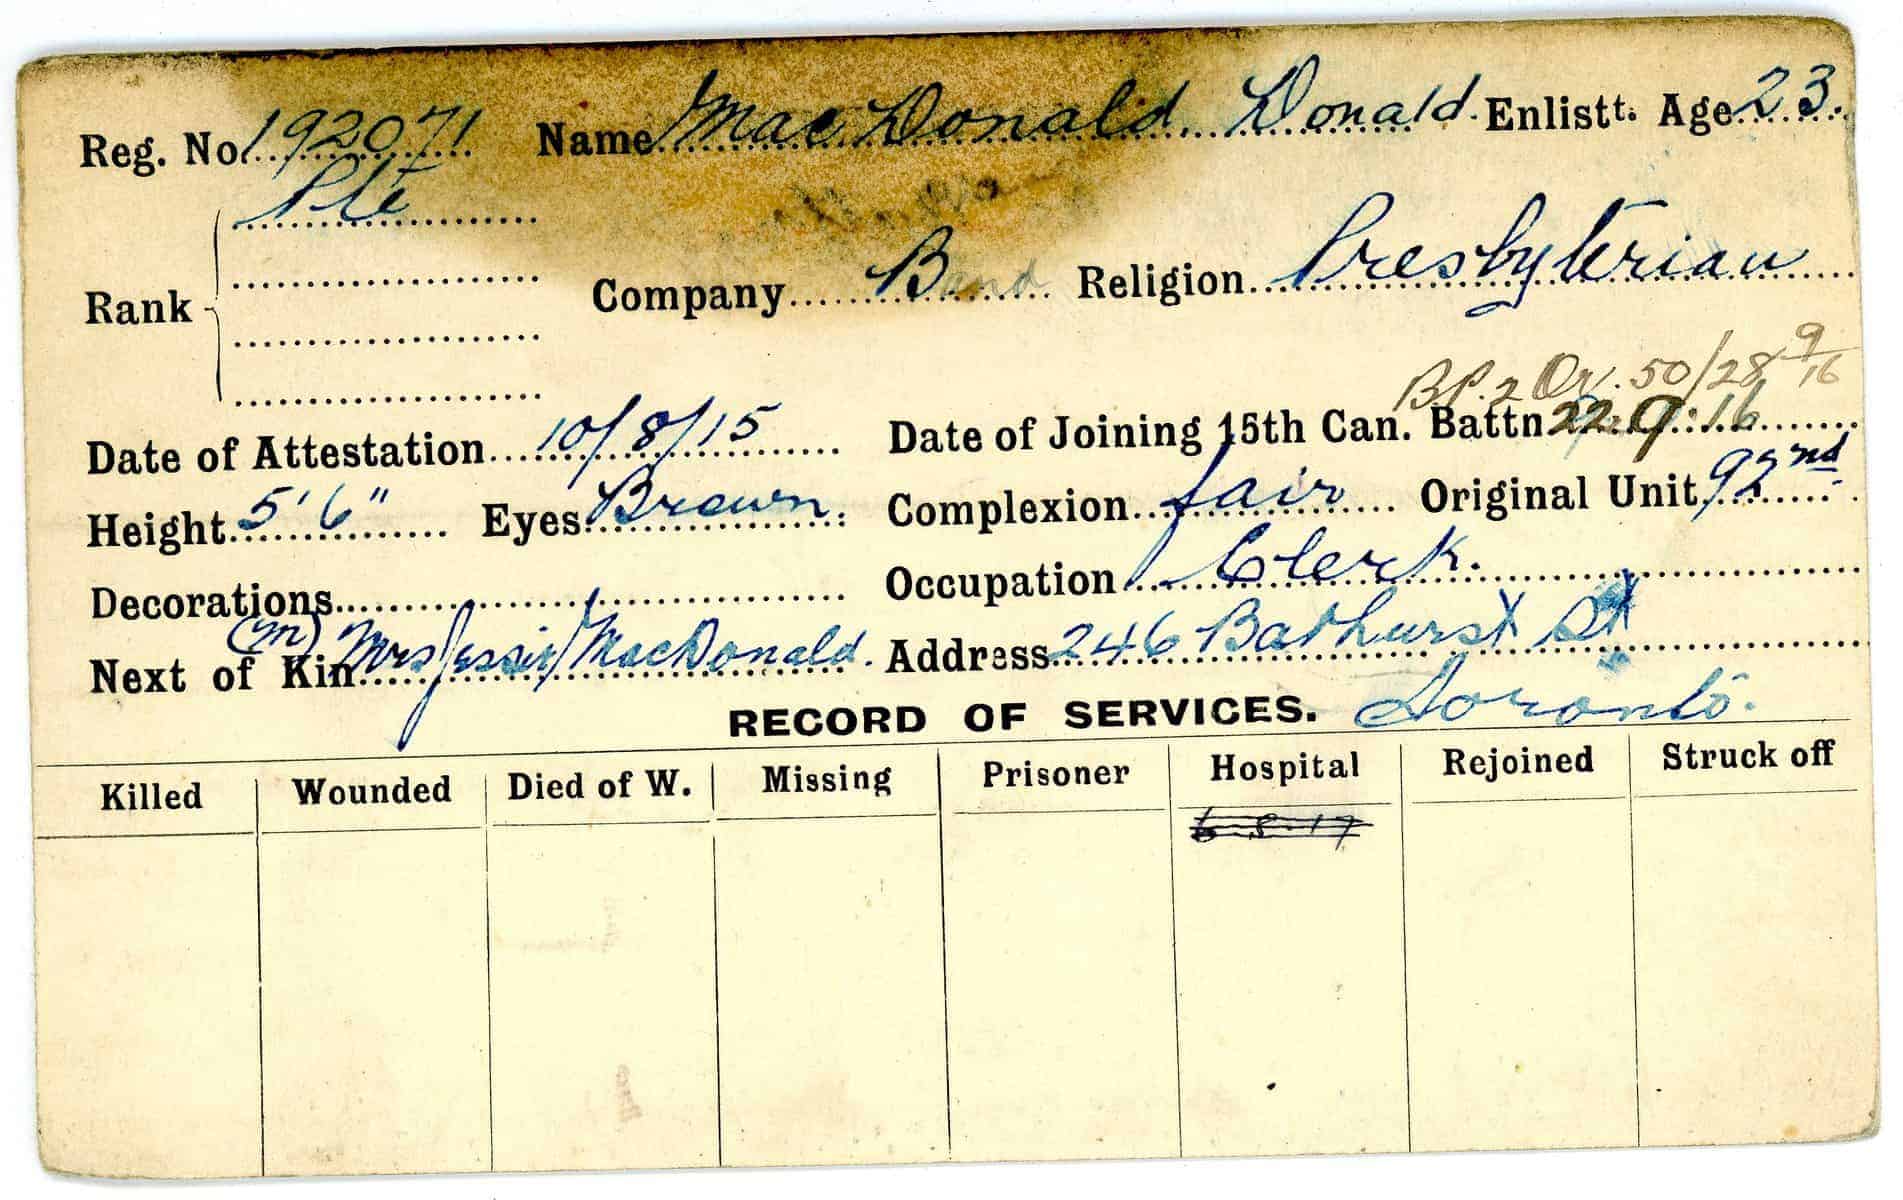 Reg. No. 192071 Name MacDonald. Donald. Enlistt. Age 23.
Pte
Rank Company Band Religion Presbyterian
B.P. 2 Or. 50/28 9/16
Date of Attestation 10/8/15 Date of Joining 15th Can. Battn 22.9.16
Height 5'6" Eyes Brown. Complexion fair Original Unit 92nd
Decorations Occupation Clerk.
(m)
Next of Kin Mrs Jessie MacDonald. Address 246 Bathurst St
RECORD OF SERVICES. Toronto.
Killed Wounded Died of W. Missing Prisoner Hospital Rejoined Struck off